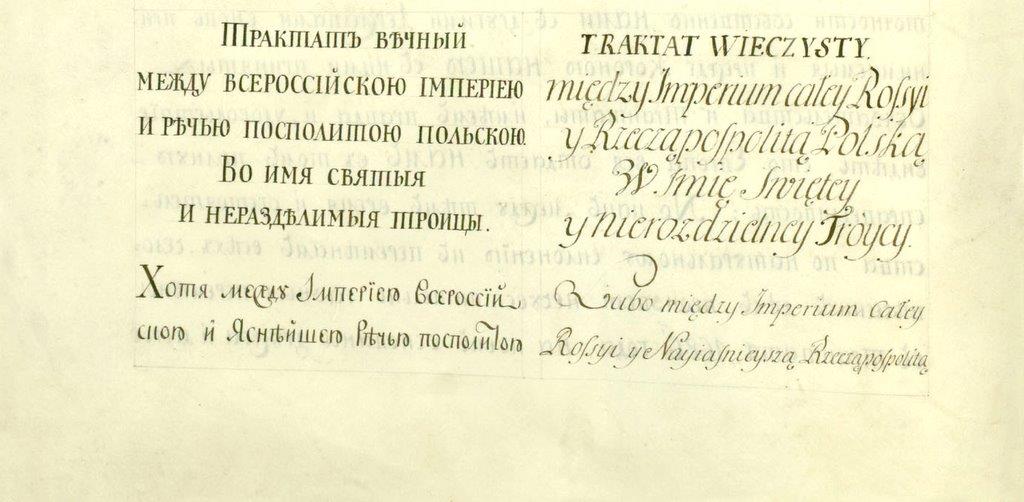 Трактатъ вѣчный
между Всероссійскою Імперіею
и Рѣчью Посполитою Польскою.
Во имя святыя
и нераздѣлимыя троицы.
Хотя между Імперіею Всероссій
скою и Яснѣйшею Рѣчью посполитою
TRAKTAT WIECZYSTY.
między Imperium całey Rossyi
y Rzecząpospolitą Polską
W Imię Swiętey
y nierozdzielney Troycy.
Lubo między Imperium całey
Rossyi y e Nayiasnieyszą Rzecząpospolitą